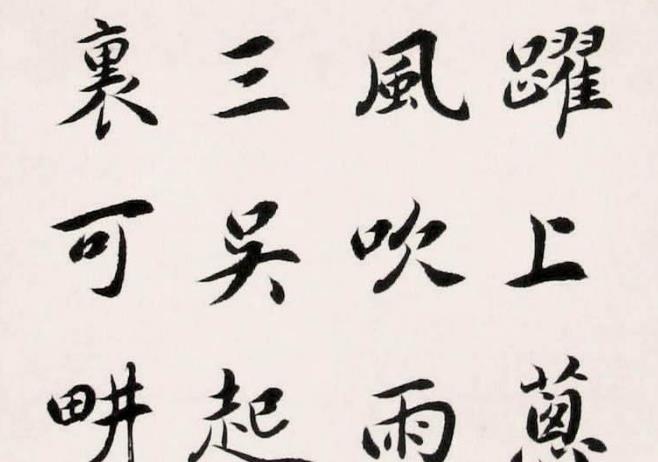 躍上蔥
風吹雨
三吳起
裏可畊